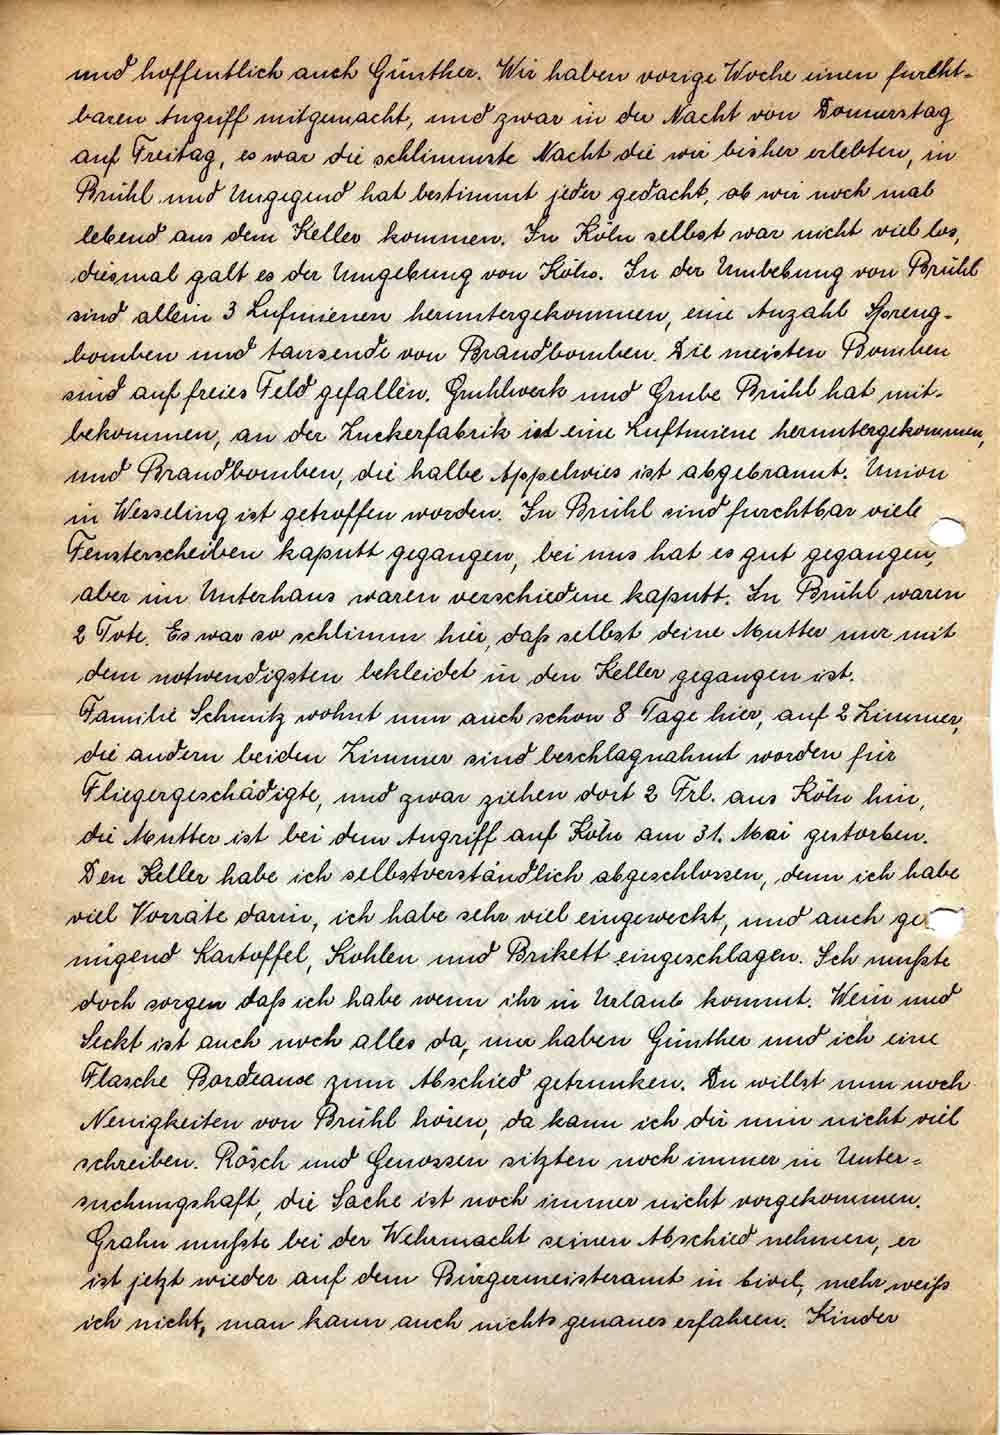 und hoffentlich auch Günther. Wir haben vorige Woche einen furcht-
baren Angriff mitgemacht, und zwar in der Nacht von Donnerstag
auf Freitag, es war die schlimmste Nacht die wir bisher erlebten, in
Brühl und Ungegend hat bestimmt jeder gedacht, ob wir noch mal
lebend aus dem Keller kommen. In Köln selbst war nicht viel los,
diesmal galt es der Umgebung von Köln. In der Umbebung von Brühl
sind allein 3 Lufmienen heruntergekommen, eine Anzahl Spreng-
bomben und tausende von Brandbomben. Die meisten Bomben
sind auf freies Feld gefallen. Gruhlwerk und Grube Brühl hat mit-
bekommen, an der Zuckerfabrik ist eine Luftmiene heruntergekommen,
und Brandbomben, die halbe Appelwies ist abgebrannt. Union
in Wesseling ist getroffen worden. In Brühl sind furchtbar viele
Fensterscheiben kaputt gegangen, bei uns hat es gut gegangen,
aber im Unterhaus waren verschiedene kaputt. In Brühl waren
2 Tote. Es war so schlimm hier, daß selbst deine Mutter nur mit
dem notwendigsten bekleidet in den Keller gegangen ist.
Familie Schmitz wohnt nun auch schon 8 Tage hier, auf 2 Zimmer,
die andern beiden Zimmer sind beschlagnahmt worden für
Fliegergeschädigte, und zwar ziehen dort 2 Frl. aus Köln hin,
die Mutter ist bei dem Angriff auf Köln am 31. Mai gestorben.
Den Keller habe ich selbstverständlich abgeschlossen, denn ich habe
viel Vorräte darin, ich habe sehr viel eingeweckt, und auch ge-
nügend Kartoffel, Kohlen und Brikett eingeschlagen. Ich mußte
doch sorgen daß ich habe wenn ihr in Urlaub kommt. Wein und
Seckt ist auch noch alles da, nur haben Günther und ich eine
Flasche Bordeaux zum Abschied getrunken. Du willst nun noch
Neuigkeiten von Brühl hören, da kann ich dir nun nicht viel
schreiben. Rösch und Genossen sitzten noch immer in Unter-
suchungshaft, die Sache ist noch immer nicht vorgekommen.
Grahn mußte bei der Wehrmacht seinen Abschied nehmen, er
ist jetzt wieder auf dem Bürgermeisteramt in Civil, mehr weiß
ich nicht, man kann auch nichts genaues erfahren. Kinder